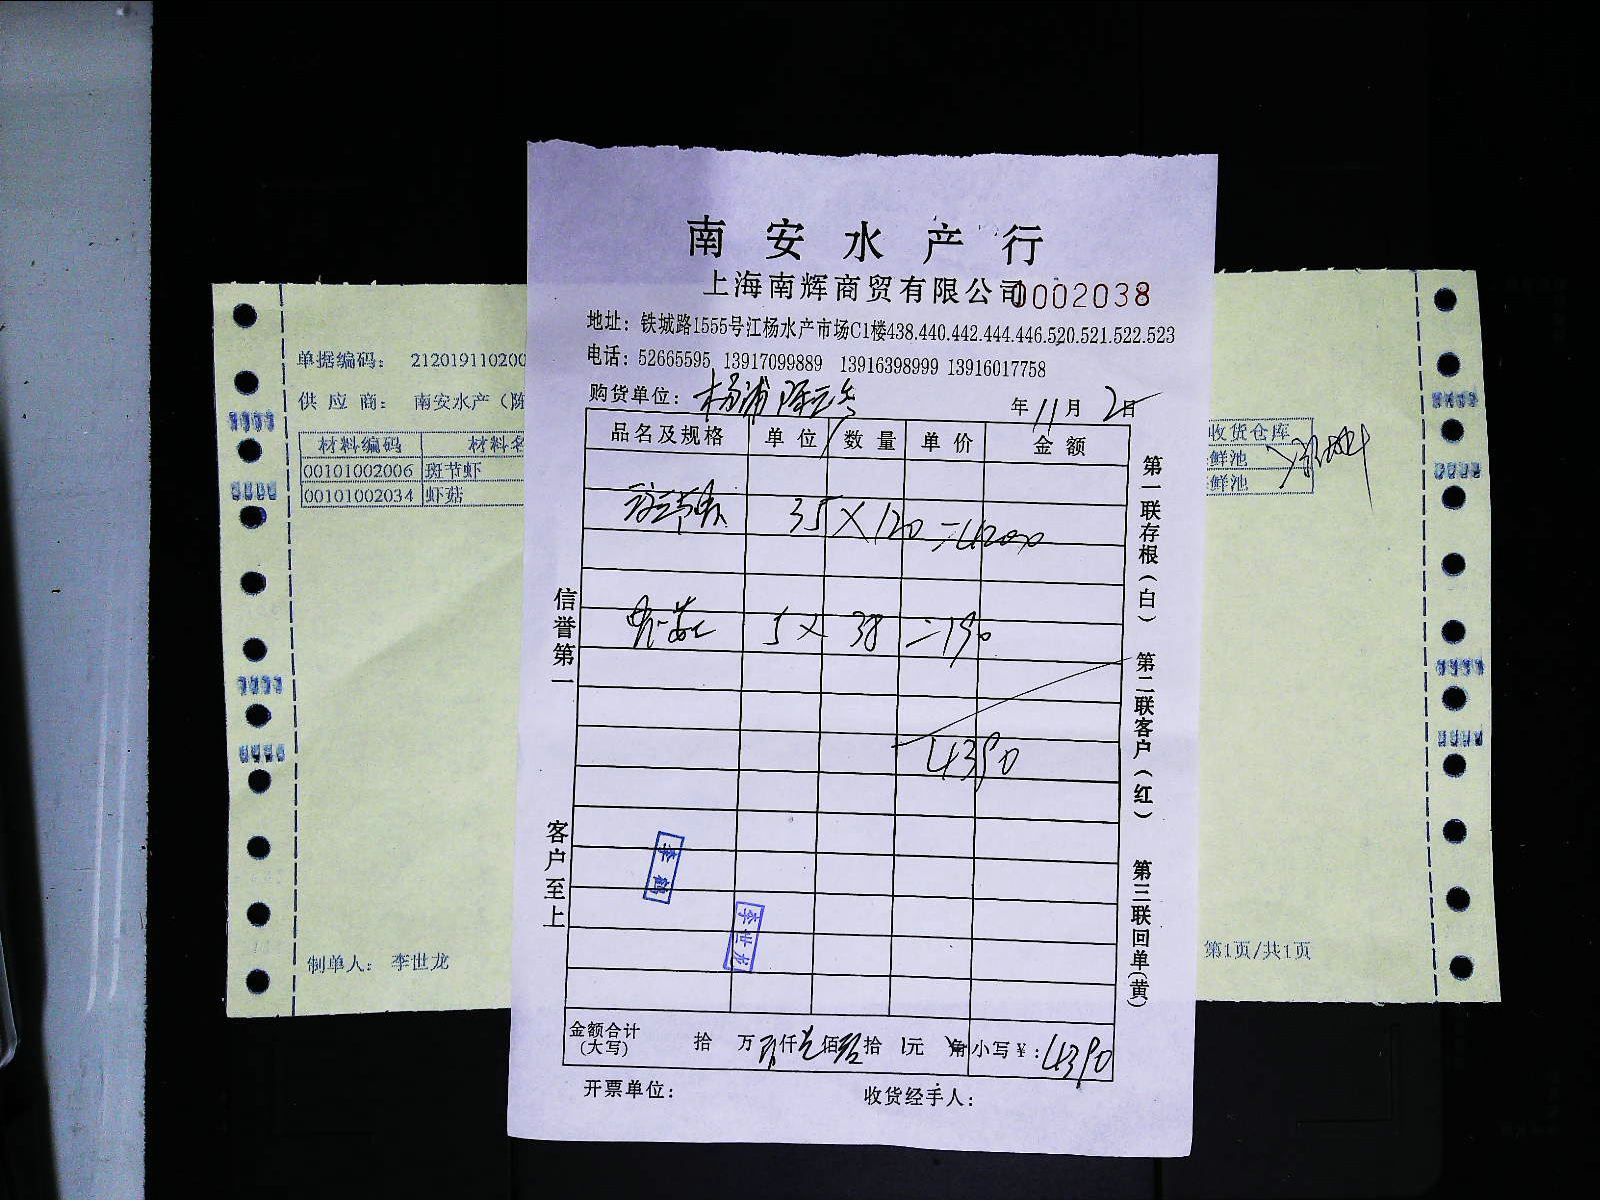 南安水产行
上海南辉商贸有限公司 0002038
地址：铁城路1555号江杨水产市场C1楼438.440.442.444.446.520.521.522.523
电话：52665595 13917099889 13916398999 13916017758
购货单位：杨浦 年11月2日
品名及规格 单位 数量 单价 金额
35×120=4200
虾菇 5×38=190
4390
李鹤
李世龙
金额合计(大写) 拾 万 仟 佰 拾 元 角 小写￥：4390
开票单位： 收货经手人：
信誉第一
客户至上
第一联存根（白）
第二联客户（红）
第三联回单（黄）
单据编码： 212019110200
供应商： 南安水产（陈
材料编码 材料名
00101002006 斑节虾
00101002034 虾菇
收货仓库
鲜池
鲜池
制单人： 李世龙
第1页/共1页